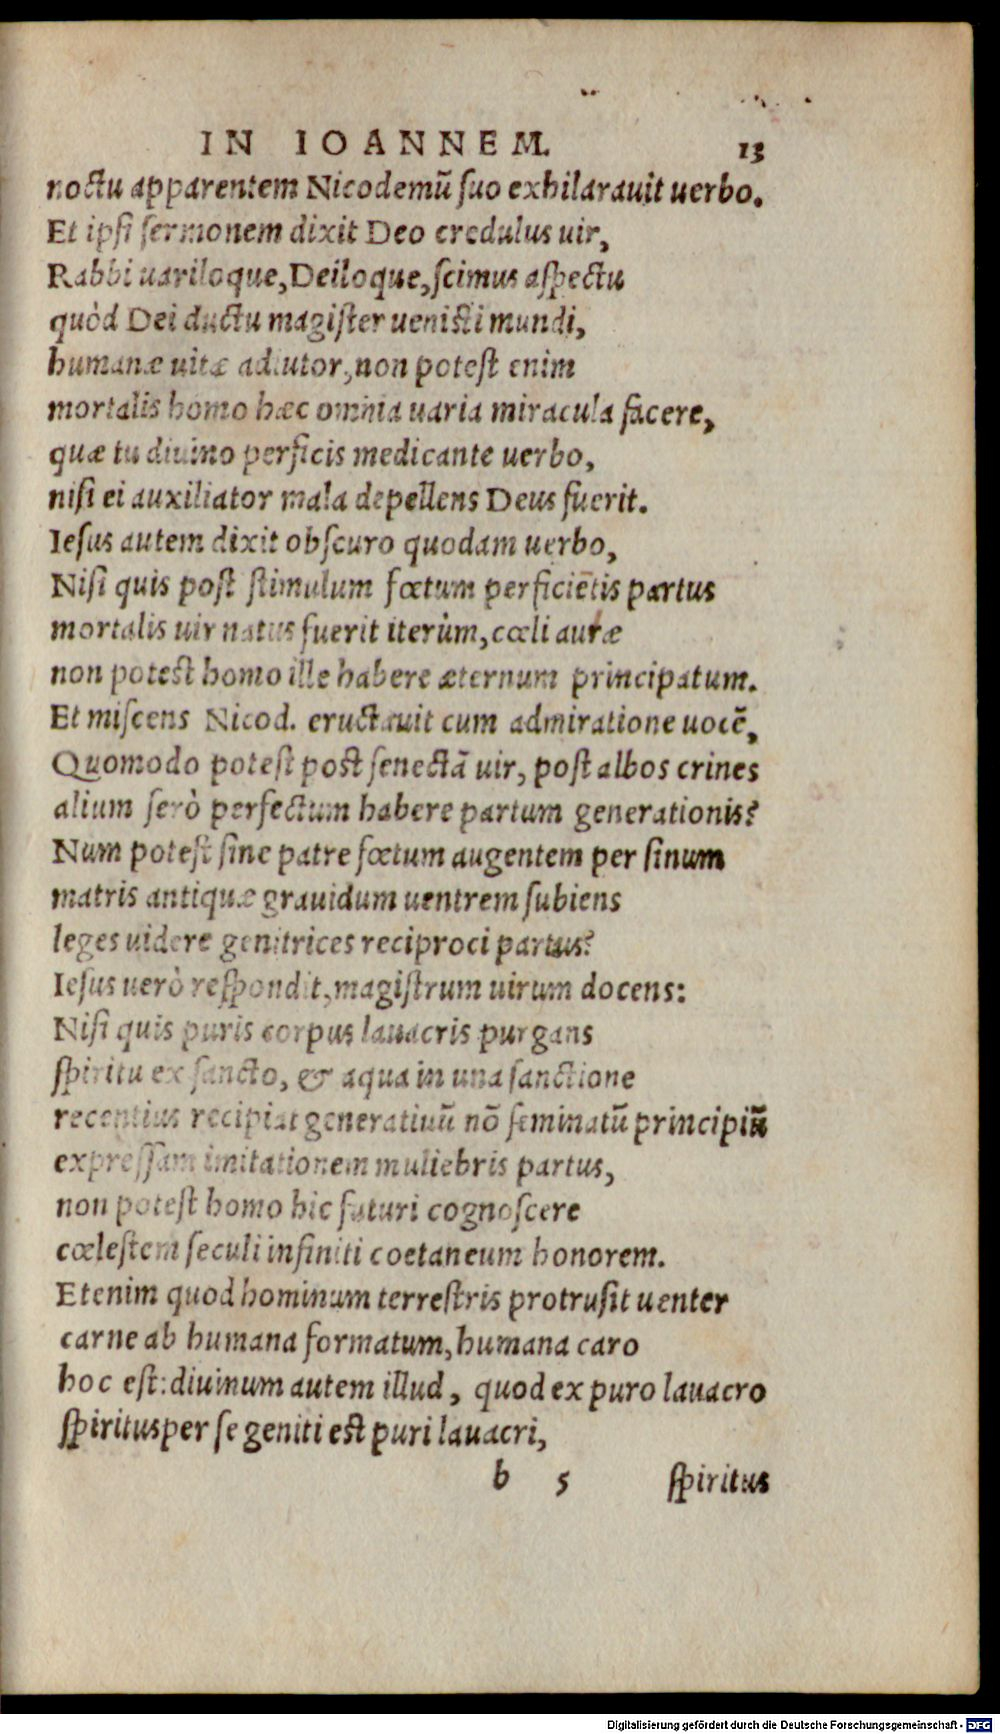 IN IOANNEM. 13
noctu apparentem Nicodemū suo exhilarauit uerbo.
Et ipsi sermonem dixit Deo credulus uir,
Rabbi uariloque, Deiloque, scimus aspectu
quòd Dei ductu magister uenisti mundi,
humanæ uitæ adiutor, non potest enim
mortalis homo hæc omnia uaria miracula facere,
quæ tu diuino perficis medicante uerbo,
nisi ei auxiliator mala depellens Deus fuerit.
Iesus autem dixit obscuro quodam uerbo,
Nisi quis post stimulum fœtum perficiētis partus
mortalis uir natus fuerit iterùm, cœli auræ
non potest homo ille habere æternum principatum.
Et miscens Nicod. eructauit cum admiratione uocē,
Quomodo potest post senectā uir, post albos crines
alium serò perfectum habere partum generationis?
Num potest sine patre fœtum augentem per sinum
matris antiquæ grauidum uentrem subiens
leges uidere genitrices reciproci partus?
Iesus uerò respondit, magistrum uirum docens:
Nisi quis puris corpus lauacris purgans
spiritu ex sancto, & aqua in una sanctione
recentius recipiat generatiuū nō seminatū principiū
expressam imitationem muliebris partus,
non potest homo hic futuri cognoscere
cœlestem seculi infiniti coetaneum honorem.
Etenim quod hominum terrestris protrusit uenter
carne ab humana formatum, humana caro
hoc est: diuinum autem illud, quod ex puro lauacro
spiritus per se geniti est puri lauacri,
b 5 spiritus
Digitalisierung gefördert durch die Deutsche Forschungsgemeinschaft - DFG